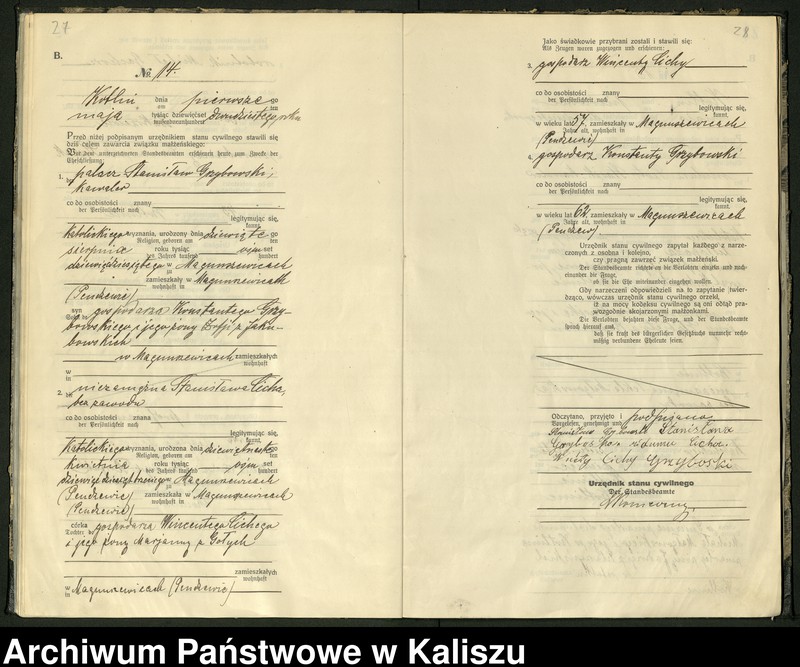 27
B.
№ 14.
Kotlin dnia pierwszego
am ten
maja tysiąc dziewięćset dwudziestego roku
tausendneunhundert
Przed niżej podpisanym urzędnikiem stanu cywilnego stawili się
dziś celem zawarcia związku małżeńskiego:
Vor dem unterzeichneten Standesbeamten erschienen heute zum Zwecke der
Eheschließung:
1. palacz Stanisław Grzybowski,
kawaler
co do osobistości znany
der Persönlichkeit nach
legitymując się,
kannt,
katolickiego wyznania, urodzony dnia
Religion, geboren am
sierpnia roku tysiąc set
des Jahres tausend hundert
dziewięćdziesiątego w Magunszewicach
zu
zamieszkały w Magunszewicach
wohnhaft in
(Pendzewie)
syn gospodarza Konstantego Grzy-
Sohn des
bowskiego i jego żony Zofji z Jaku-
bowskich
w Magunszewicach zamieszkałych
wohnhaft
w
in
2. niezamężna Stanisława Cicha,
bez zawodu
co do osobistości znana
der Persönlichkeit nach
legitymując się,
kannt,
katolickiego wyznania, urodzona dnia
Religion, geboren am
kwietnia roku tysiąc set
des Jahres tausend hundert
w Magunszewicach
zu
(Pendzewie) zamieszkała w Magunszewicach
wohnhaft in
(Pendzewie)
córka gospodarza Wincentego Cichego
Tochter des
i jego żony Marjanny z Gołych
zamieszkałych
wohnhaft
w Magunszewicach (Pendzewie)
in
28
Jako świadkowie przybrani zostali i stawili się:
Als Zeugen waren zugezogen und erschienen:
3. gospodarz Wincenty Cichy
co do osobistości znany
der Persönlichkeit nach
legitymując się,
kannt.
w wieku lat 57, zamieszkały w Magunszewicach
Jahre alt, wohnhaft in
(Pendzewie)
4. gospodarz Konstanty Grzybowski
co do osobistości znany
der Persönlichkeit nach
legitymując się,
kannt,
w wieku lat 62, zamieszkały w Magunszewicach
Jahre alt, wohnhaft in
(Pendzew)
Urzędnik stanu cywilnego zapytał każdego z narze-
czonych z osobna i kolejno,
czy pragną zawrzeć związek małżeński.
Der Standesbeamte richtete an die Verlobten einzeln und nach-
einander die Frage,
ob sie die Ehe miteinander eingehen wollen.
Gdy narzeczeni odpowiedzieli na to zapytanie twier-
dząco, wówczas urzędnik stanu cywilnego orzekł,
iż na mocy kodeksu cywilnego są oni odtąd pra-
wozgodnie skojarzonymi małżonkami.
Die Verlobten bejahten diese Frage, und der Standesbeamte
sprach hierauf aus,
daß sie kraft des bürgerlichen Gesetzbuchs nunmehr recht-
mäßig verbundene Eheleute seien.
Odczytano, przyjęto i podpisano
Vorgelesen, genehmigt und
Stanisław Stanisława
z domu Cicha
Cichy Grzyboski
Urzędnik stanu cywilnego
Der Standesbeamte
Archiwum Państwowe w Kaliszu